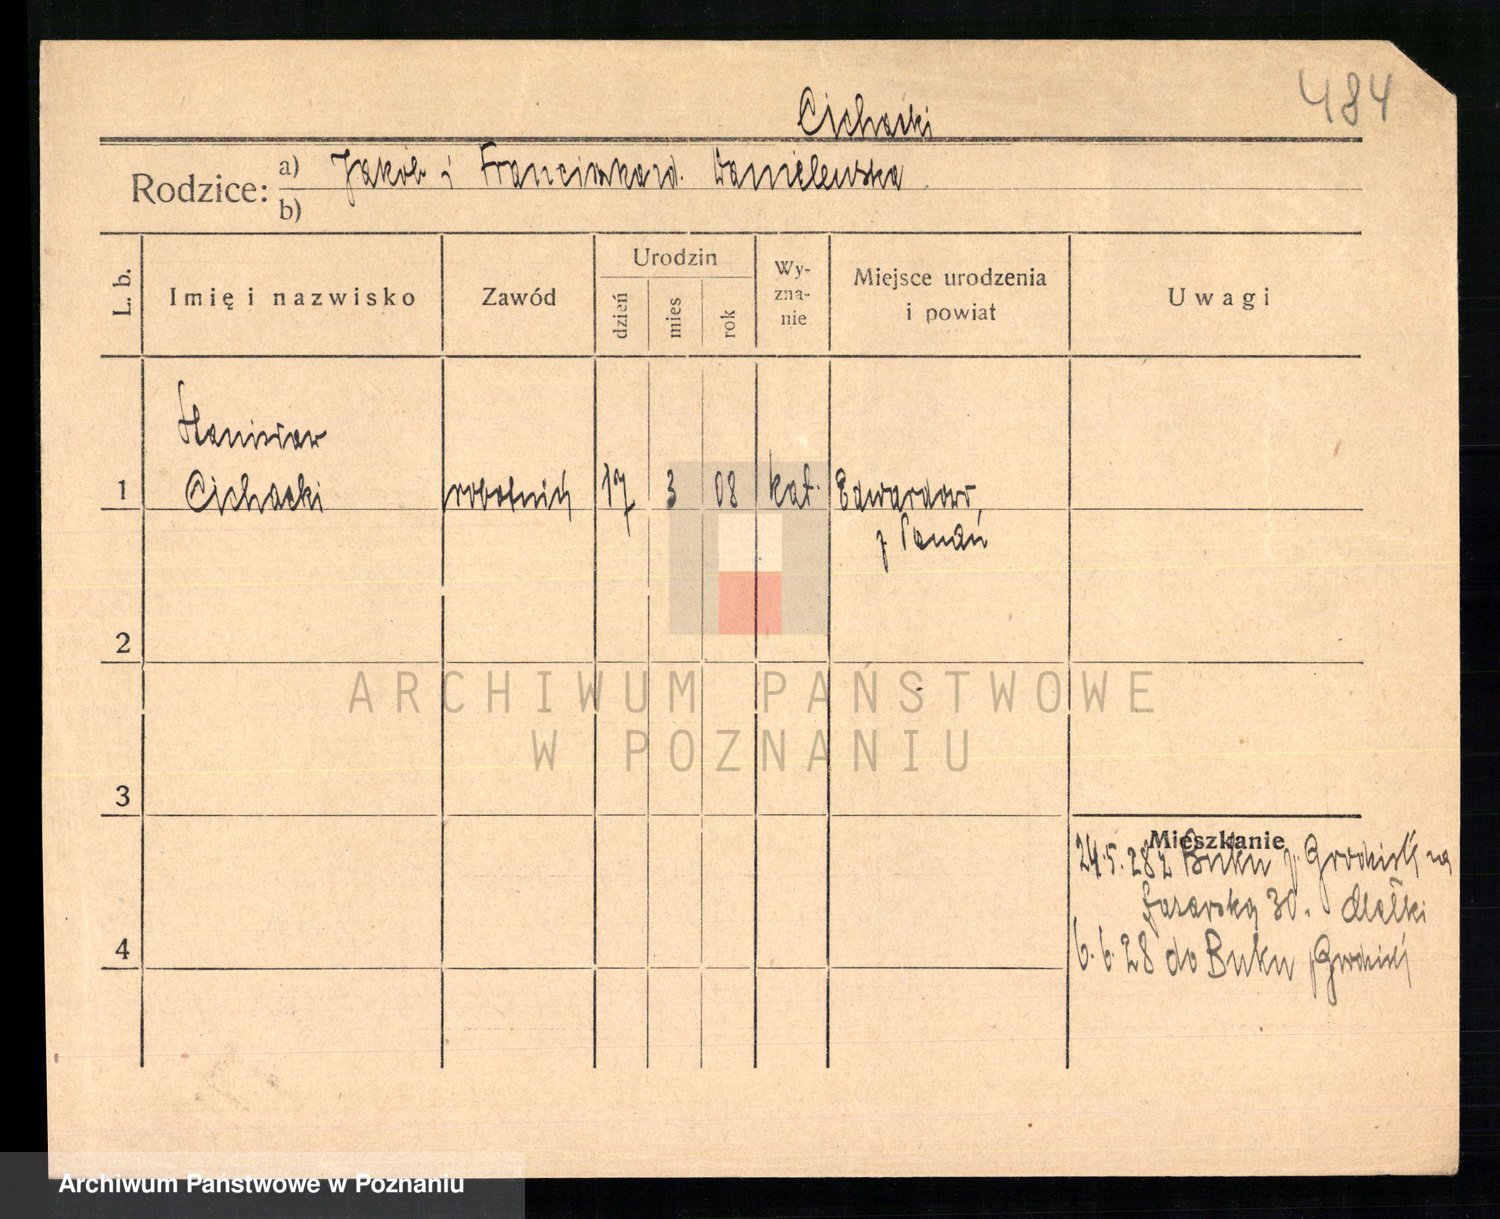 484
Cichacki
Rodzice: a) Jakób i Franciszka d. Danielewska
b)
L. b.
Imię i nazwisko
Zawód
Urodzin
dzień
mies
rok
Wy-
zna-
nie
Miejsce urodzenia
i powiat
Uwagi
Stanisław
1 Cichacki robotnik 17 3 08 kat. Edwardowo,
p. Poznań
2
3
4
Mieszkanie
24.5.28 z Buku p. Grodzisk na
30.
6.6.28 do Buku p. Grodzisk
ARCHIWUM PAŃSTWOWE
W POZNANIU
Archiwum Państwowe w Poznaniu